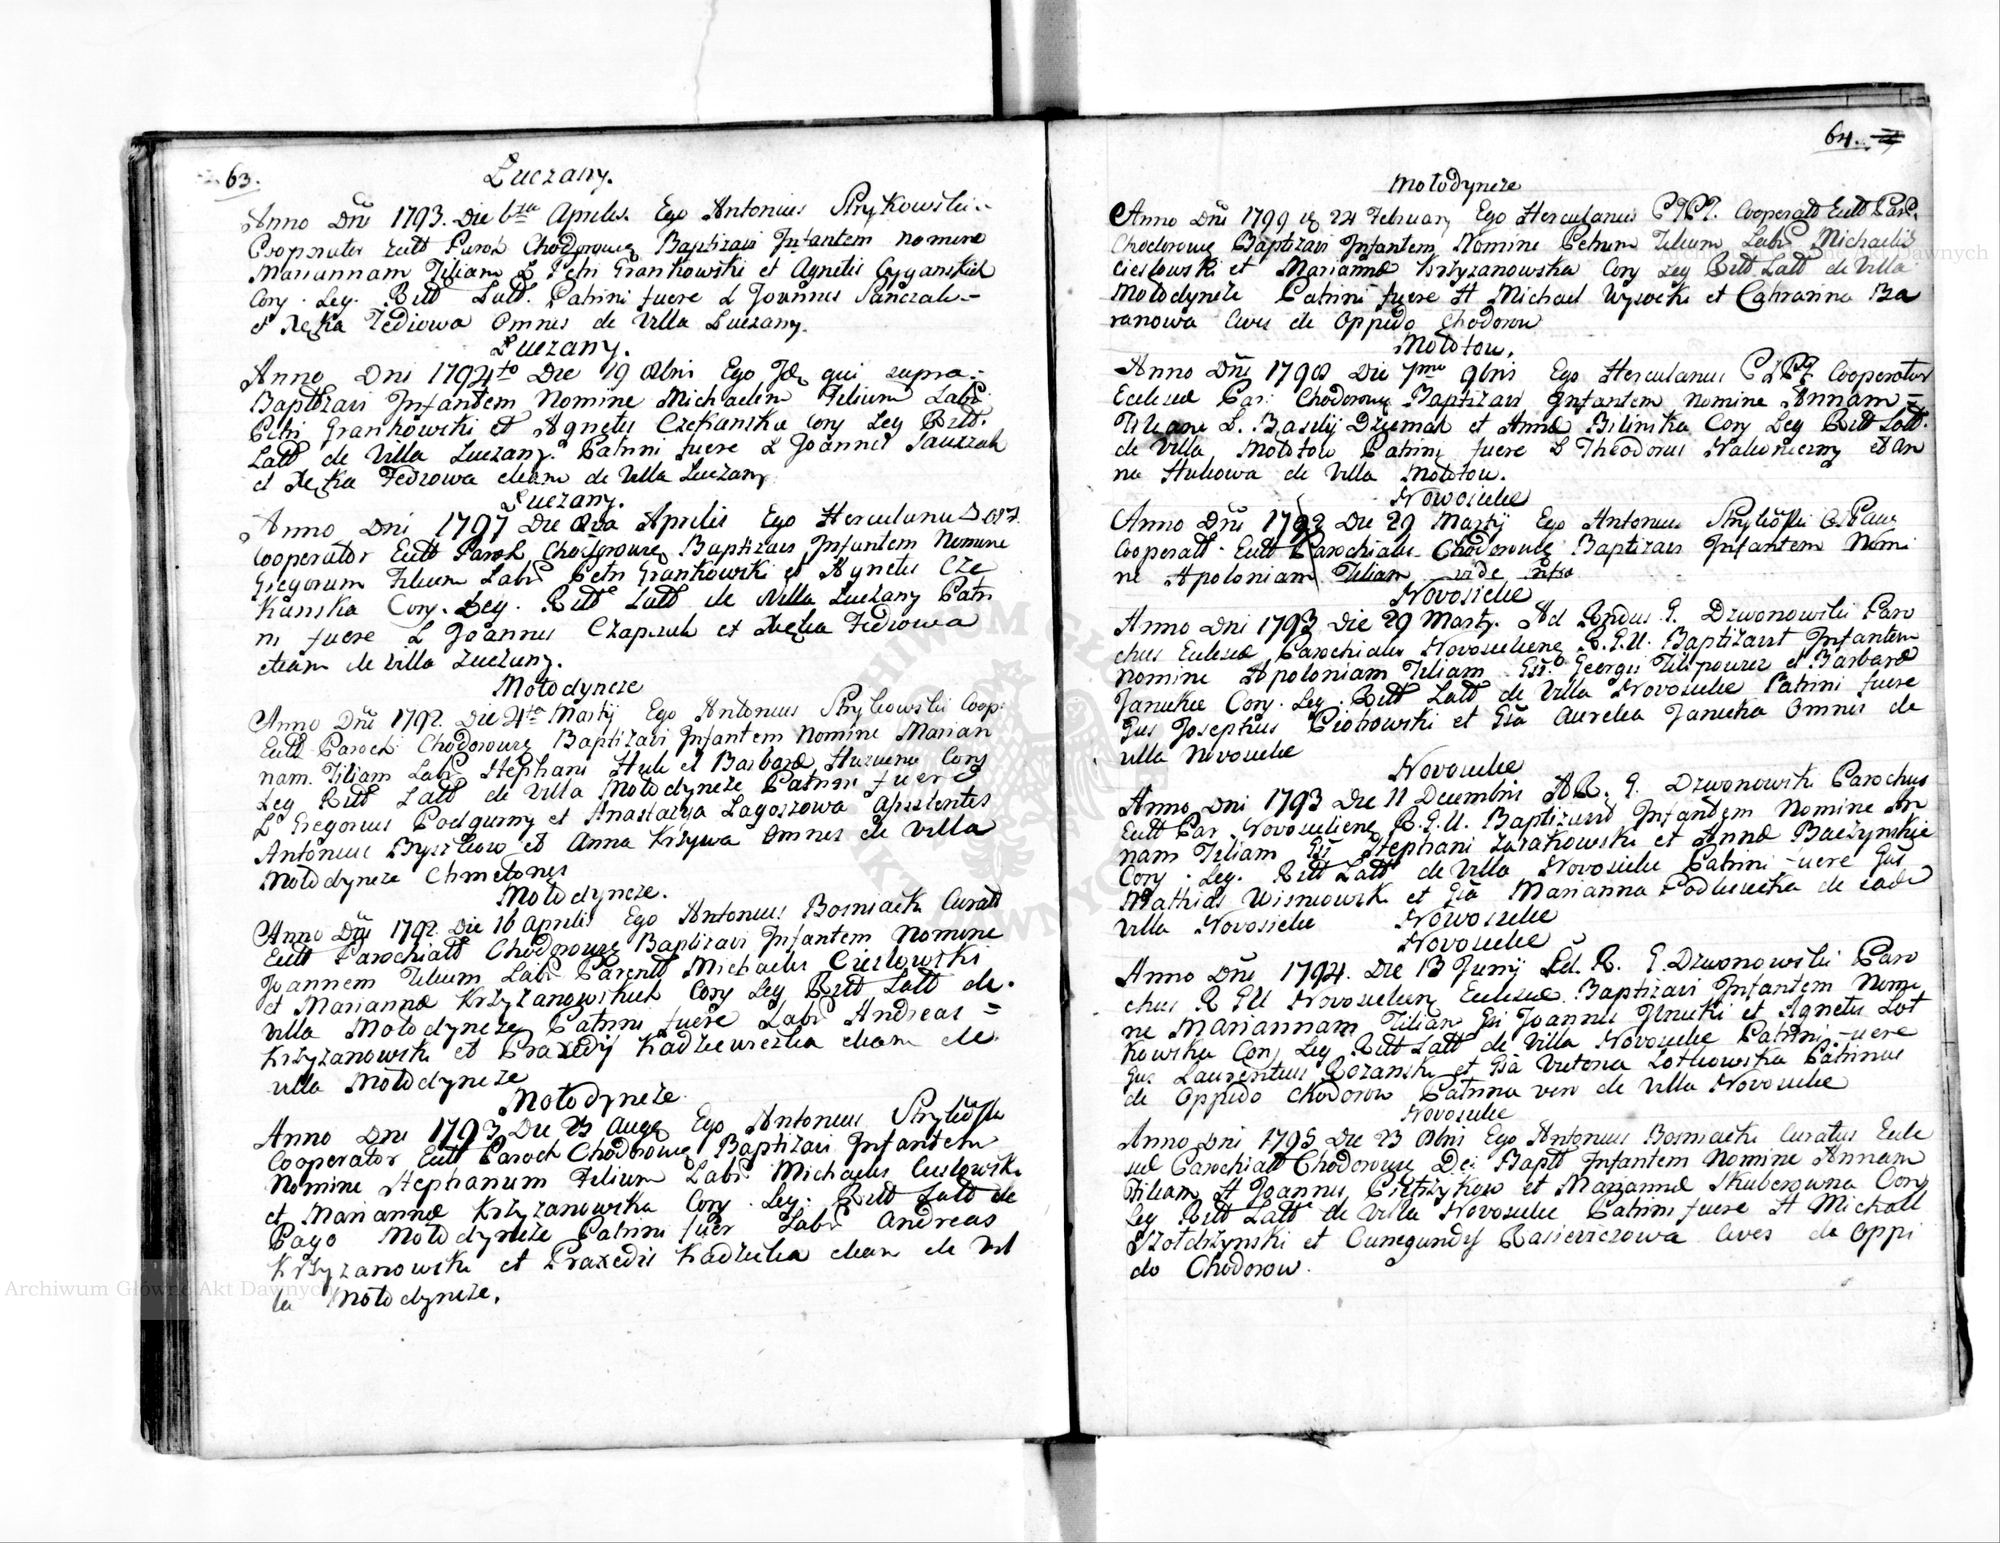 63.
Łuczany.
Anno Dni 1793. Die 6ta Aprilis. Ego Antonius Strykowski
Cooperator Eccl Paroch Chodorovię Baptizavi Infantem nomine
Mariannam Filiam L Petri Grankowski et Agnetis Cyganskich
Conj. Leg. Ritt Latt. Patrini fuere L Joannes Panczak
et Xęka Fediowa Omnes de Villa Łuczany.
Łuczany.
Anno Dni 1794to Die 19 Ego Id qui supra
Baptizavi Infantem Nomine Michaelem Filium Labr
Petri Grankowski et Agnetis Czekanska Conj Leg Ritt.
Latt de Villa Łuczany. Patrini fuere L Joannes Panczak
et Xęka Fedrowa etiam de Villa Łuczany
Łuczany.
Anno Dni 1797 Die 8va Aprilis Ego Herculanus
Cooperator Eccl Paroch Chodorovię Baptizavi Infantem Nomine
Gregorium Filium Labr Petri Grankowski et Agnetis Cze
kanska Conj. Leg. Ritt Latt de Villa Łuczany Patri
ni fuere L Joannes Czapczuk et Xęka Fedrowa
etiam de villa Łuczany.
Mołodyncze
Anno Dni 1792. Die 4ta Martij Ego Antonius Strykowski Coop.
Eccl Paroch Chodorovię Baptizavi Infantem Nomine Marian
nam. Filiam Labr Stephani Huk et Barbarae Conj
Leg Ritt Latt de Villa Mołodyncze Patrini fuere
L Gregorius Podgurny et Anastazya Lagoszowa assistentes
Antonius et Anna Krzywa omnes de Villa
Mołodyncze Chmetones
Mołodyncze.
Anno Dni 1792. Die 16 Aprilis Ego Antonius Bosniacki Curatt
Eccl Parochiatt Chodorovię Baptizavi Infantem Nomine
Joannem Filium Labr Parentt Michaelis Cieslowski
et Mariannae Krzyzanowskich Conj Leg Ritt Latt de
Villa Mołodyncze Patrini fuere Labr Andreas
Krzyzanowski et Praxedis Kadziewiczka etiam de
villa Mołodyncze
Mołodyncze.
Anno Dni 1793 Die 23 Augę Ego Antonius Strykowski
Cooperator Eccl Paroch Chodorovię Baptizavi Infantem
Nomine Stephanum Filium Labr Michaelis Cieslowski
et Mariannae Krzyzanowska Conj. Leg: Ritt Latt de
Pago Mołodyncze Patrini fuer Labr Andreas
Krzyzanowski et Praxedis Kadziecka etiam de Vil
la Mołodyncze.
64.
Mołodyncze
Anno Dni 1799 24 February Ego Herculanus Cooperatt Eccl Par.
Chodorovię Baptizavi Infantem Nomine Petrum Filium Labr Michaelis
Cieslowski et Mariannae Krzyzanowska Conj Leg Ritt Latt de Villa
Mołodyncze Patrini fuere H Michael Wysocki et Catharina Ba
ranowa Cives de Oppido Chodorow
Mołotow.
Anno Dni 1798 Die 7ma 9bris Ego Herculanus Cooperator
Ecclesiae Par: Chodorovię Baptizavi Infantem Nomine Annam
Filiam L. Basilij Dziemak et Annae Bilinska Conj Leg Ritt Latt.
de Villa Mołotow Patrini fuere L Theodorus Nakoneczny et An
na Hukowa de Villa Mołotow.
Nowosielce
Anno Dni 1793 Die 29 Martij Ego Antonius
Cooperatt. Eccl Parochialis Chodorovię Baptizavi Infantem Nomi
ne Apoloniam Filiam vide infra
Novosielce
Anno Dni 1793 Die 29 Martij. Ad Rndus G. Dzwonowski Paro
chus Ecclesiae Parochialis Novosielienę R.G.U. Baptizavit Infantem
nomine Apoloniam Filiam Georgii et Barbarae
Janickie Conj. Leg. Ritt Latt de Villa Novosielce Patrini fuere
Gus Josephus Piotrowski et Gsa Aurelia Janicka Omnes de
villa Novosielce
Novosielce
Anno Dni 1793 Die 11 Decembris AR. G. Dzwonowski Parochus
Eccl Par Novosielienę R.G.U. Baptizavit Infantem Nomine An
nam Filiam Gsi Stephani Zarakowski et Annae Baczynskie
Conj. Leg. Ritt Latt de Villa Novosielce Patrini fuere Gus
Mathias Wisniowski et Gsa Marianna Podlesiecka de eade
Villa Novosielce
Nowosielce
Novosielce
Anno Dni 1794. Die 13 Junij Ad. R. G. Dzwonowski Paro
chus R GU Novosielienę Ecclesiae Baptizavi Infantem Nomi
ne Mariannam Filiam Gsi Joannis et Agnetis Lot
kowska Conj Leg Ritt Latt de Villa Novosielce Patrini fuere
Gus Laurentius Rozanski et Gsa Victoria Lotkowska Patrinus
de Oppido Chodorow Patrina vero de Villa Novosielce
Novosielce
Anno Dni 1795 Die 23 Ego Antonius Bosniacki Curatus Eccle
siae Parochiatt Chodorovię Dei Baptt Infantem Nomine Annam
Filiam H Joannis Pietrzykow et Mariannae Skuberowna Conj
Leg Ritt Latt de Villa Novosielce Patrini fuere H Michael
Szołdrzynski et Cunegundis Rasiewiczowa Cives de Oppi
do Chodorow.
Archiwum Główne Akt Dawnych